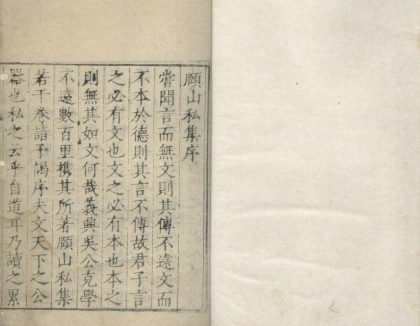 顧山私集序
嘗聞言而無文則其傳不遠文而
不本於德則其言不傳故君子言
之必有文也文之必有本也本之
則無其如文何哉義興吳公克學
不遠數百里携其所著顧山私集
若干卷請予謁序夫文天下之公
器也私之云乎自道耳乃讀之累